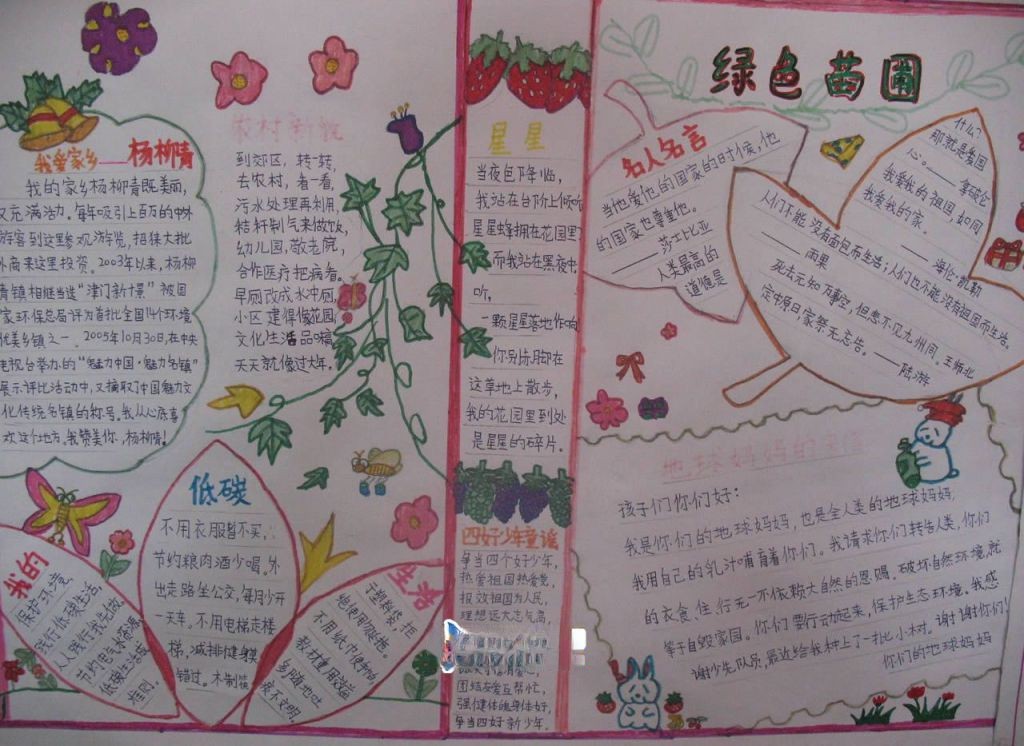 绿色苗圃
我爱家乡——杨柳青
我的家乡杨柳青既美丽,
又充满活力。每年吸引上百万的中外
游客到这里参观游览,招徕大批
外商来这里投资。2003年以来,杨柳
青镇相继当选“津门新十景”被国
家环保总局评为首批全国14个环境
优美乡镇之一。2005年10月30日,在中央
电视台举办的“魅力中国·魅力名镇”
展示评比活动中,又摘取了中国魅力文
化传统名镇的称号。我从心底喜
欢这个地方,我赞美你,杨柳青!
农村新
到郊区,转一转,
去农村,看一看,
污水处理再利用,
秸秆制气来做饭,
幼儿园,敬老院,
合作医疗把病看。
旱厕改成水冲厕,
小区建得像花园,
文化生活品味
天天就像过大年。
低碳
不用衣服暂不买,
节约粮肉酒少喝。外
出走路坐公交,每月少开
一天车。不用电梯走楼
梯,减排健身
错过。木制筷
我的
保护环境
践行低碳生活
人人践行我先做
节约电气
低碳生活
生活
于塑料袋,拒
绝使用
不用纸巾使
教材重用效益
多,随地吐
痰不文明。
星星
当夜色下降临,
我站在台阶上倾听
星星蜂拥在花园里
而我站在黑夜中。
听,
一颗星星落地作响
你别赤脚在
这草地上散步,
我的花园里到处
是星星的碎片。
四好少年童谣
争当四个好少年,
热爱祖国热爱党,
报效祖国为人民,
理想远大志气高,
团结友爱互帮忙,
强健体魄身体好,
争当四好新少年。
名人名言
当他爱他的国家的时候,他
的国家也尊重他。
——莎士比亚
人类最高的
道德是
什么?
那就是爱国
心。——拿破仑
我爱我的祖国,如同
我爱我的家。
——海伦·凯勒
人们不能没有面包而生活;人们也不能没有祖国而生活。
——雨果
死去元知万事空,但悲不见九州同。王师北
定中原日,家祭无忘告。——陆游
地球妈妈的来信
孩子们你们好:
我是你们的地球妈妈,也是全人类的地球妈妈,
我用自己的乳汁哺育着你们。我请求你们转告人类,你们
的衣食、住、行无一不依赖大自然的恩赐。破坏自然环境,就
等于自毁家园。你们要行动起来,保护生态环境。我感
谢少先队员,最近给我种上了一批小树。谢谢你们!
你们的地球妈妈